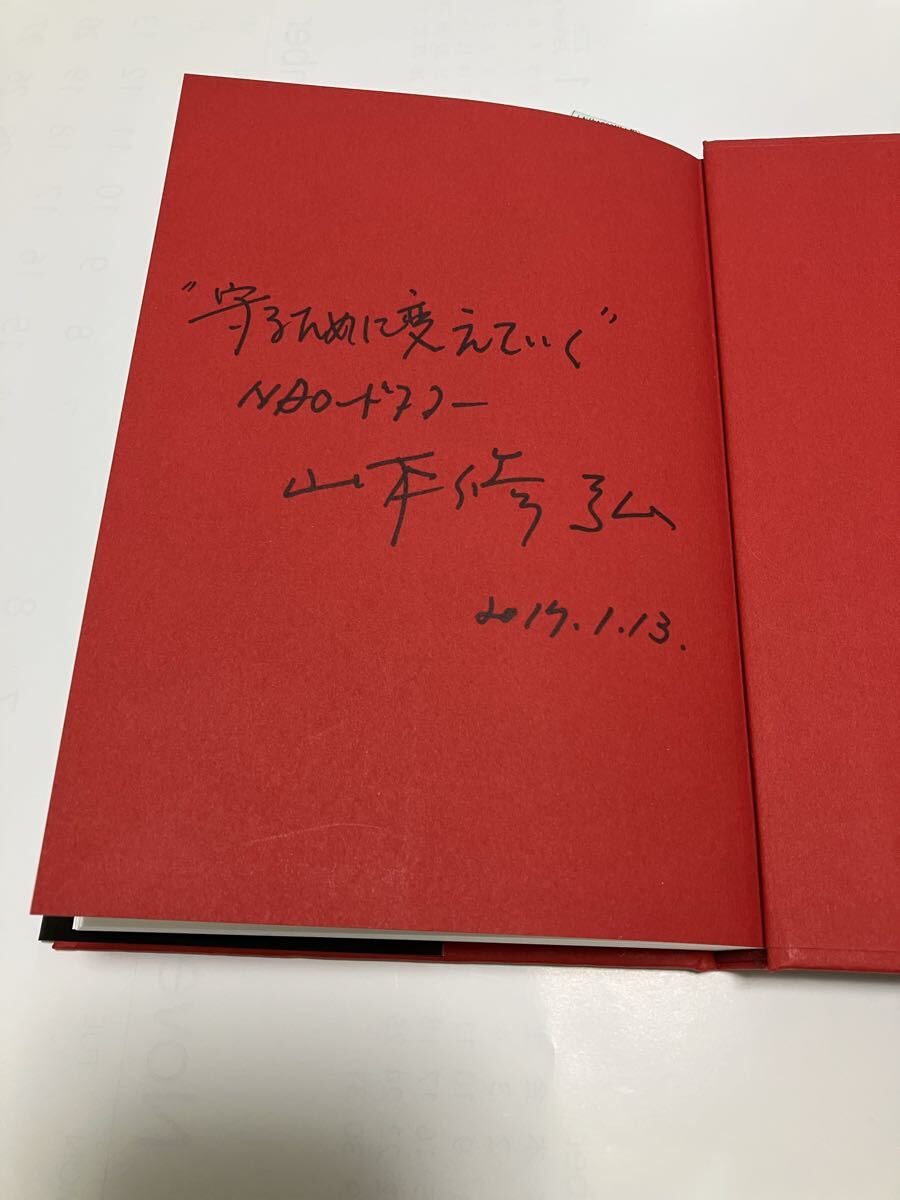 "守るために変えていく"
NDロードスター
山本修弘
2017.1.13.